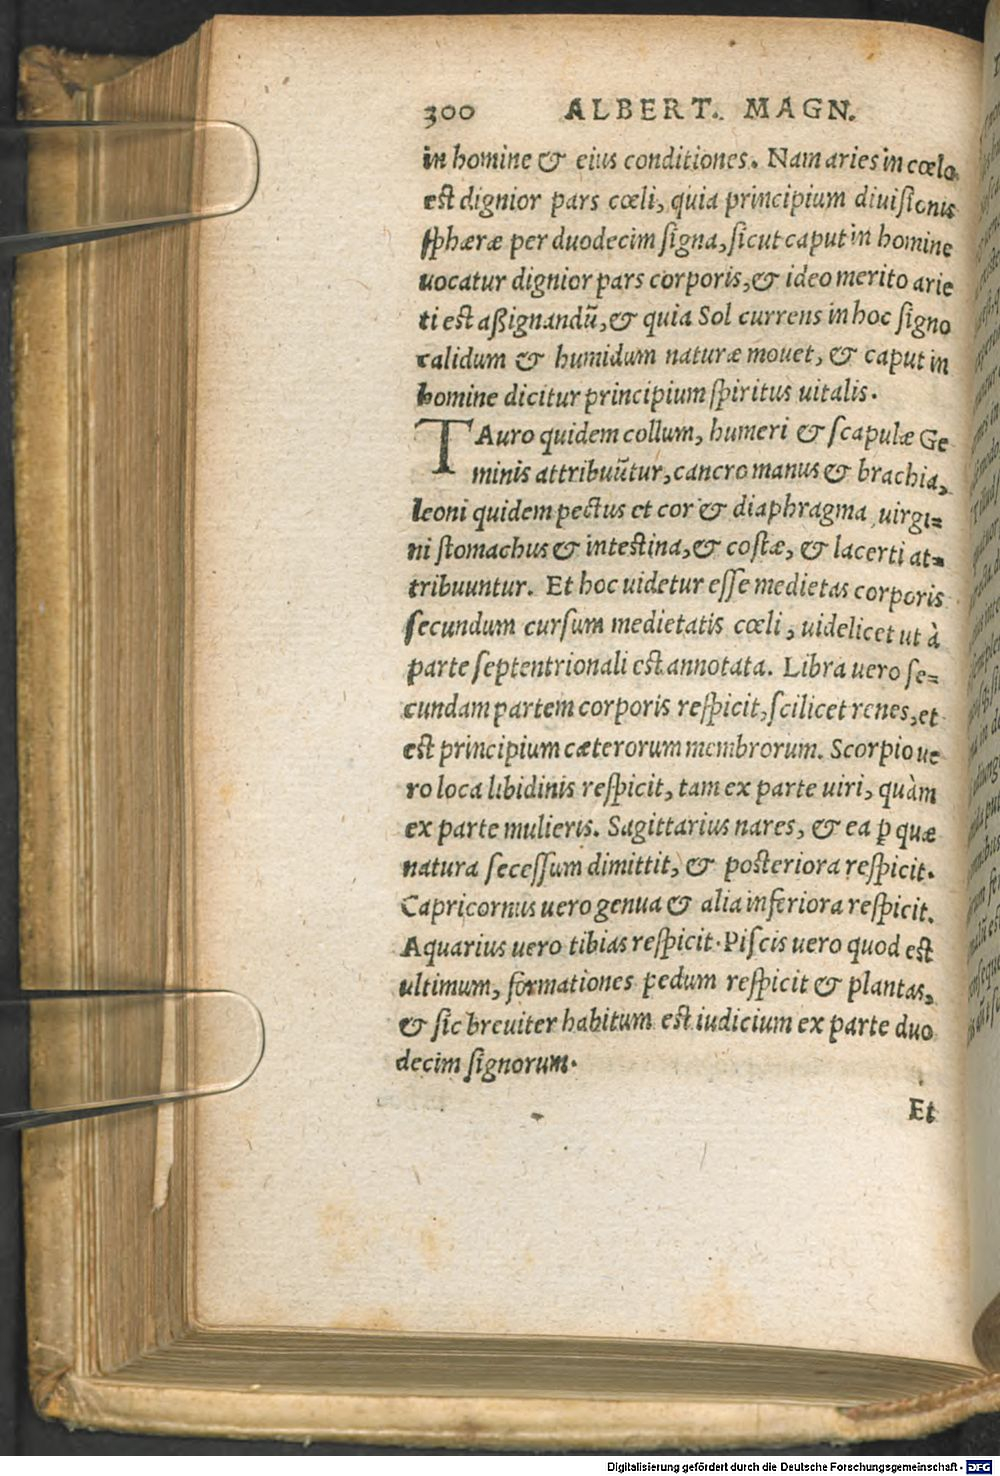 300 ALBERT. MAGN.
in homine & eius conditiones. Nam aries in cœlo
est dignior pars cœli, quia principium diuisionis
sphæræ per duodecim signa, sicut caput in homine
uocatur dignior pars corporis, & ideo merito arie
ti est aßignandũ, & quia Sol currens in hoc signo
calidum & humidum naturæ mouet, & caput in
homine dicitur principium spiritus uitalis.
TAuro quidem collum, humeri & scapulæ Ge
minis attribuũtur, cancro manus & brachia,
leoni quidem pectus et cor & diaphragma, uirgi=
ni stomachus & intestina, & costæ, & lacerti at=
tribuuntur. Et hoc uidetur esse medietas corporis
secundum cursum medietatis cœli, uidelicet ut à
parte septentrionali est annotata. Libra uero se=
cundam partem corporis respicit, scilicet renes, et
est principium cæterorum membrorum. Scorpio ue
ro loca libidinis respicit, tam ex parte uiri, quàm
ex parte mulieris. Sagittarius nares, & ea ꝑ quæ
natura secessum dimittit, & posteriora respicit.
Capricornus uero genua & alia inferiora respicit.
Aquarius uero tibias respicit. Piscis uero quod est
ultimum, formationes pedum respicit & plantas,
& sic breuiter habitum est iudicium ex parte duo
decim signorum.
Et
Digitalisierung gefördert durch die Deutsche Forschungsgemeinschaft - DFG